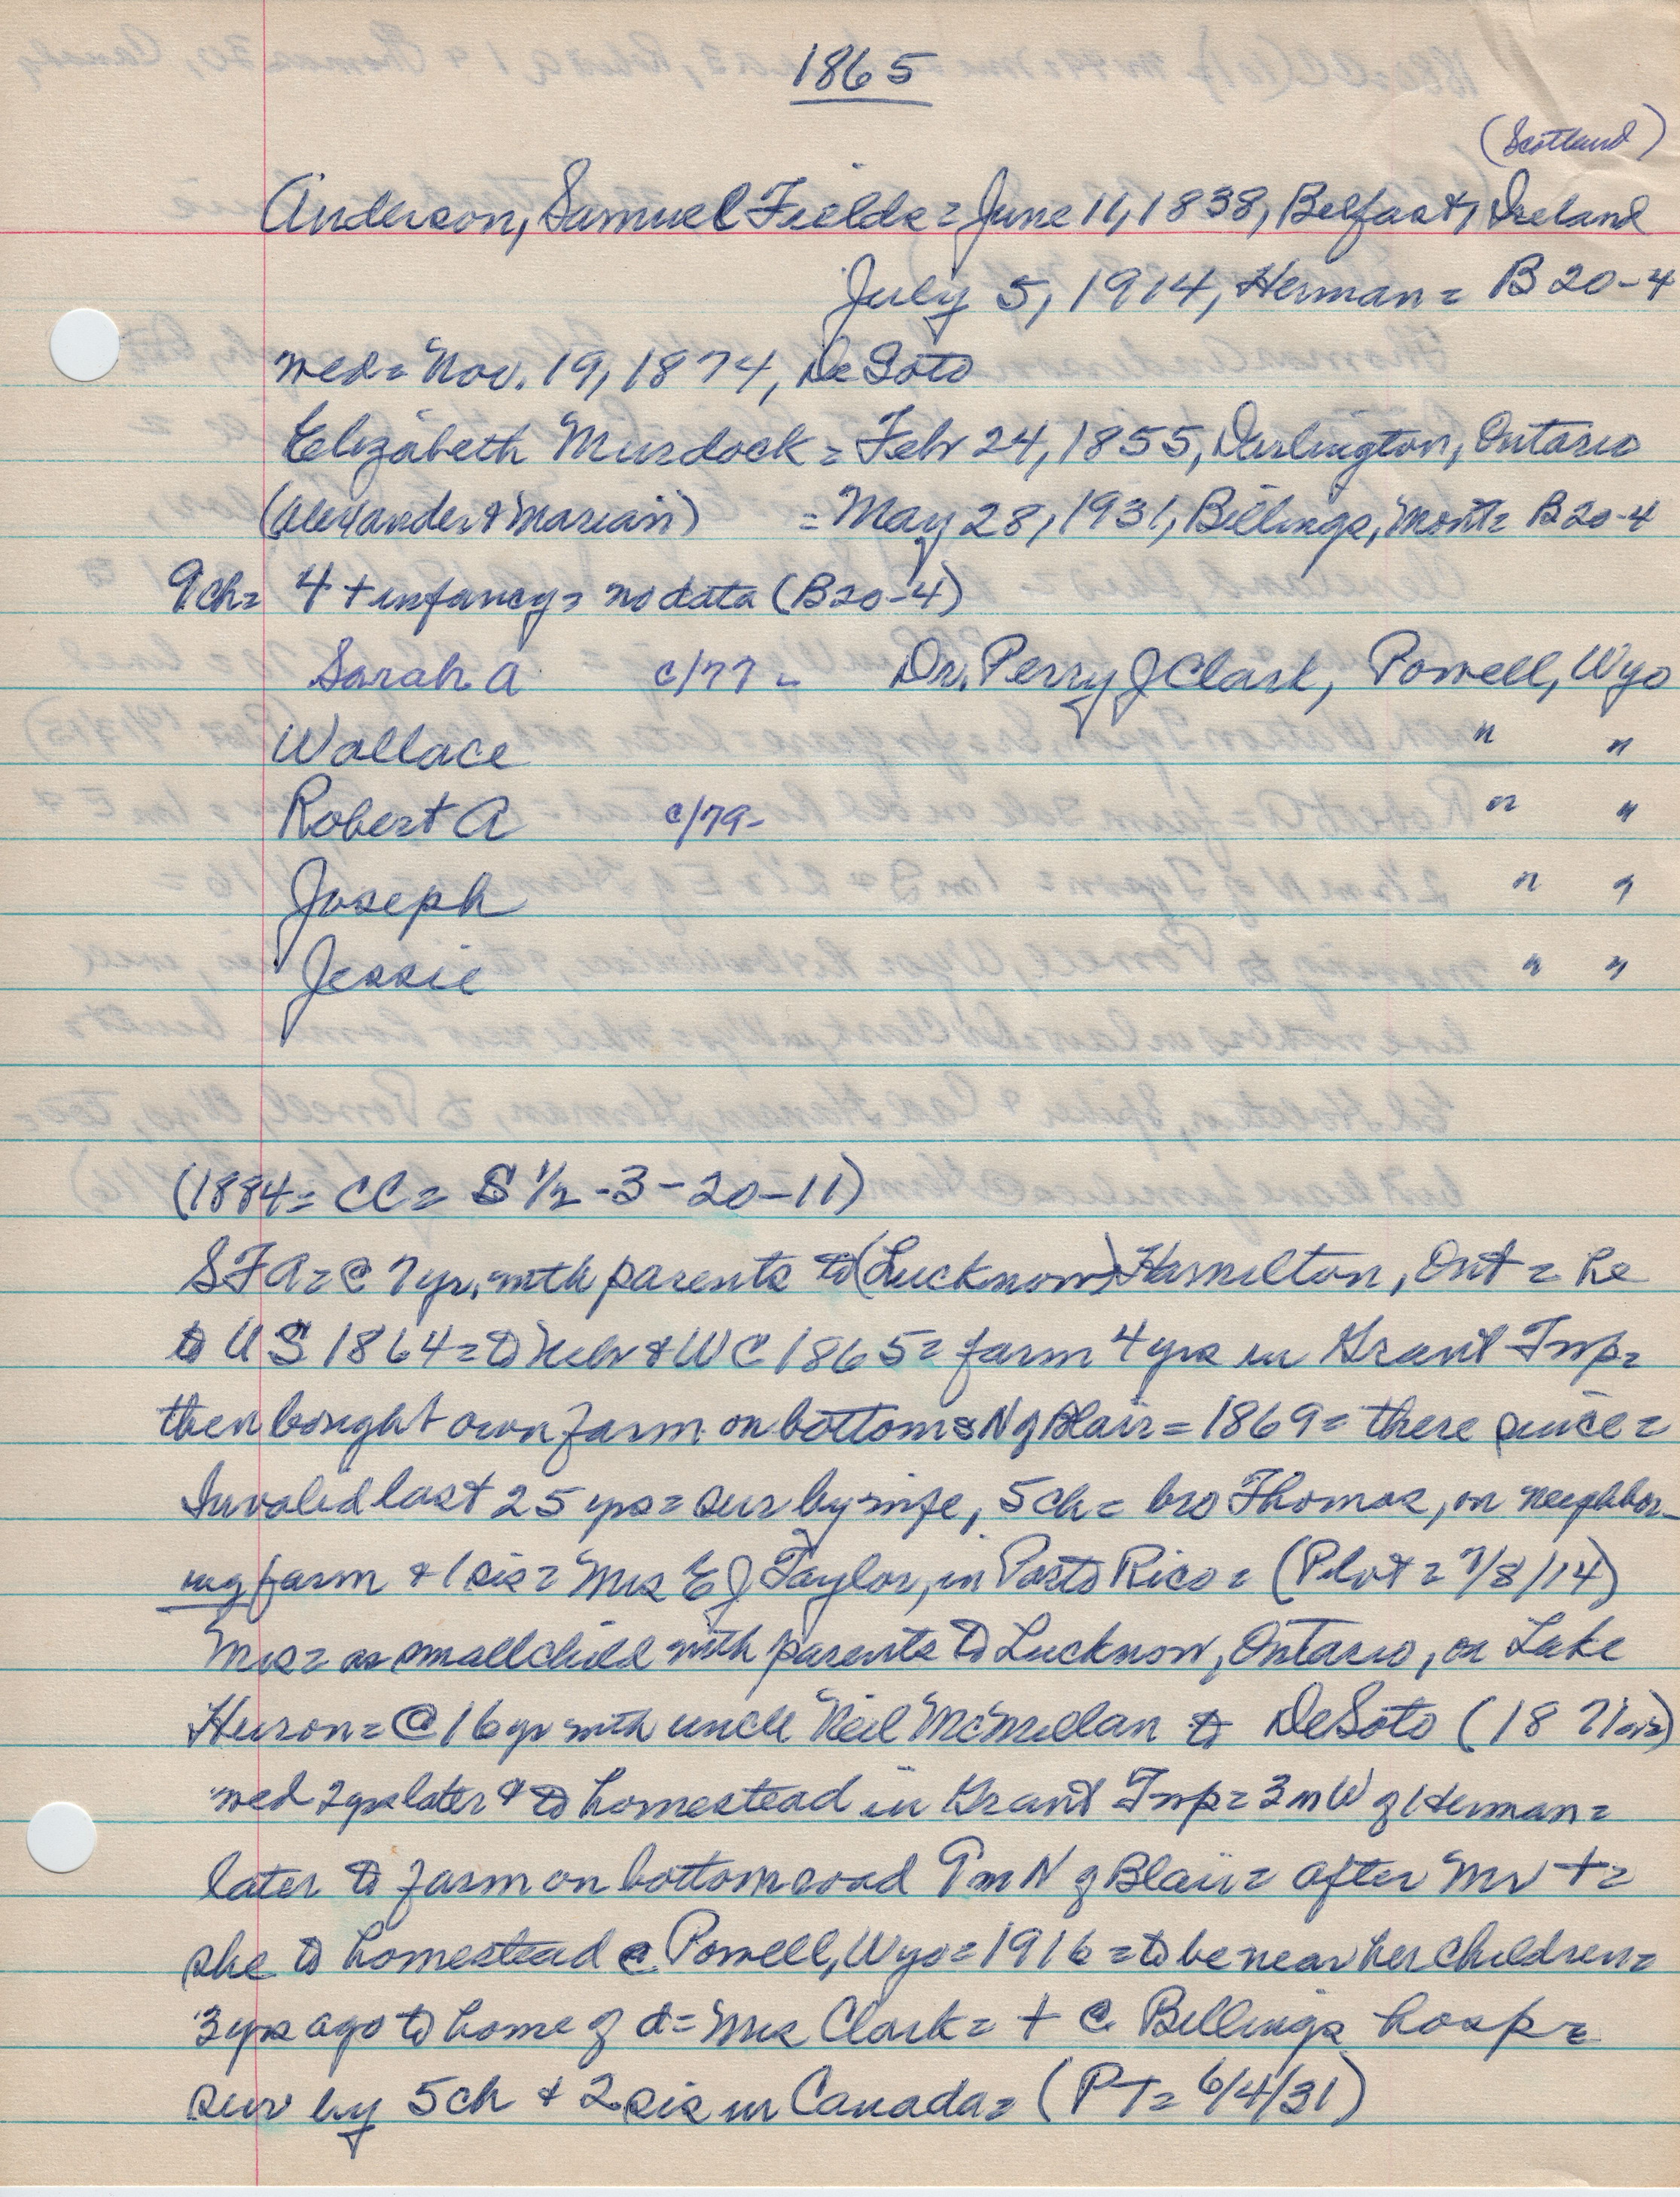 1865
(Scotland)
Anderson, Samuel Fields = June 11, 1838, Belfast, Ireland
July 5, 1914, Herman = B 20-4
wed = Nov. 19, 1874, De Soto
Elizabeth Murdock = Febr 24, 1855, Darlington, Ontario
(Alexander & Marian) = May 28, 1931, Billings, Mont = B20-4
9ch = 4 + infancy = no data (B20-4)
Sarah A c/77 - Dr. Perry J Clark, Powell, Wyo
Wallace " "
Robert A c/79- " "
Joseph " "
Jessie " "
(1884 = CC = S 1/2 - 3 - 20 - 11)
SFA = @ 7yr, with parents to (Lucknow) Hamilton, Ont = he
to US 1864 = to Nebr & WC 1865 = farm 4 yrs in Grant Twp =
then bought own farm on bottoms N of Blair = 1869 = there since =
Invalid last 25 yrs = sur by wife, 5ch = bro Thomas, on neighbor-
ing farm & 1 sis = Mrs E J Taylor, in Porto Rico = (Pilot = 7/8/14)
Mrs = as small child with parents to Lucknow, Ontario, on Lake
Huron = @ 16 yr with uncle Neil McMillan to DeSoto (1871
wed 2yrs later & to homestead in Grant Twp = 3 m W of Herman =
later to farm on bottom road 9 m N of Blair = after Mr + =
she to homestead @ Powell, Wyo = 1916 = to be near her children =
3yrs ago to home of d = Mrs Clark = + @ Billings hosp =
surv by 5ch & 2 sis in Canada = (PT = 6/4/31)